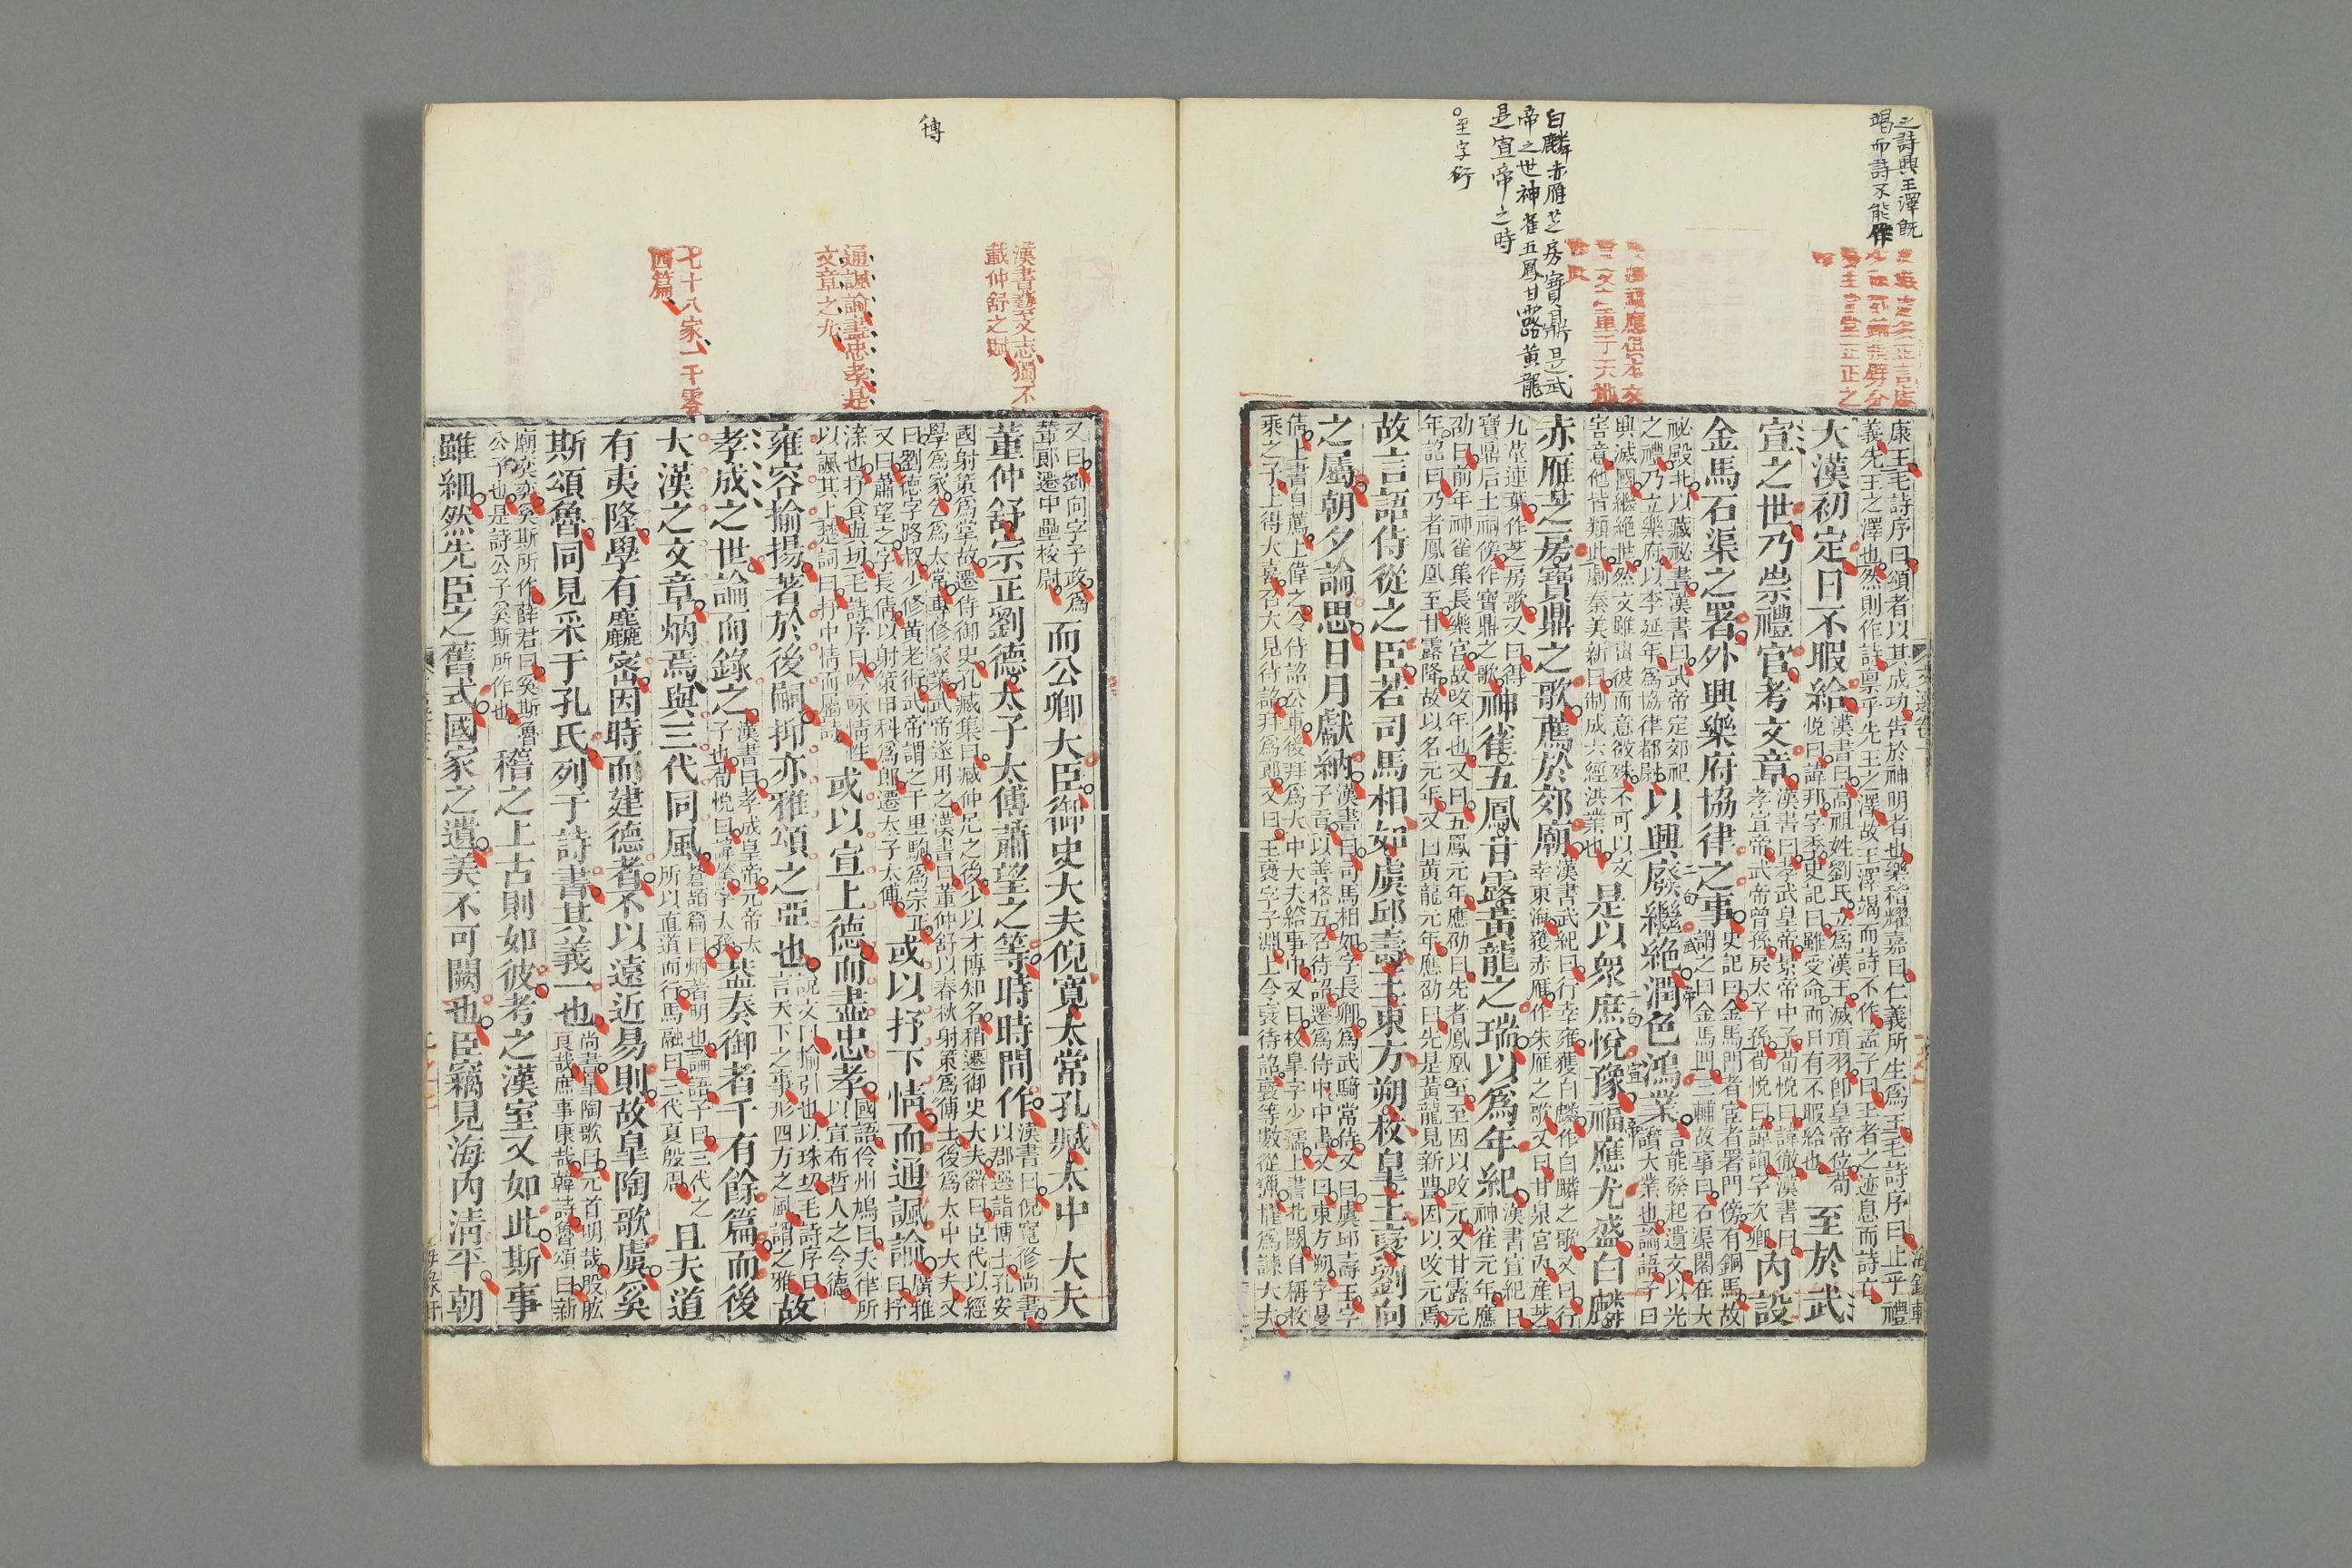 之詩興王澤旣
竭而詩不能作
白麟赤雁芝房寶鼎是武
帝之世神雀五鳳甘露黃龍
是宣帝之時
至字衍
康王毛詩序曰頌者以其成功告於神明者也樂稽耀嘉曰仁義所生爲王毛詩序曰止乎禮
義先王之澤也然則作詩稟乎先王之澤故王澤竭而詩不作孟子曰王者之迹息而詩亡
大漢初定日不暇給
漢書曰高祖姓劉氏立爲漢王滅項羽卽皇帝位荀
悅曰諱邦字季史記曰雖受命而日有不暇給也
至於武
宣之世乃崇禮官考文章
漢書曰孝武皇帝景帝中子荀悅曰諱徹漢書曰
孝宣帝武帝曾孫戾太子孫荀悅曰諱詢字次卿
內設
金馬石渠之署外興樂府協律之事
史記曰金馬門者宦者署門傍有銅馬故
謂之曰金馬門三輔故事曰石渠閣在大
祕殿北以藏祕書漢書曰武帝定郊祀
之禮乃立樂府以李延年爲協律都尉
以興廢繼絕潤色鴻業
言能發起遺文以光
讚大業也論語子曰
興滅國繼絕世然文雖出彼而意微殊不可以文
害意他皆類此劇秦美新曰制成六經洪業也
是以衆庶悅豫福應尤盛白麟
赤雁芝房寶鼎之歌薦於郊廟
漢書武紀曰行幸雍獲白麟作白麟之歌又曰行
幸東海獲赤雁作朱雁之歌又曰甘泉宮內產芝
九莖連葉作芝房歌又曰得
寶鼎后土祠傍作寶鼎之歌
神雀五鳳甘露黃龍之瑞以爲年紀
漢書宣紀曰
神雀元年應
劭曰前年神雀集長樂宮故改年也又曰五鳳元年應劭曰先者鳳凰至至因以改元又甘露元
年詔曰乃者鳳凰至甘露降故以名元年又曰黃龍元年應劭曰先是黃龍見新豊因以改元焉
故言語侍從之臣若司馬相如虞邱壽王東方朔枚皋王褒劉向
之屬朝夕論思日月獻納
漢書曰司馬相如字長卿爲武騎常侍又曰虞邱壽王字
子贛以善格五召待詔遷爲侍中中書又曰東方朔字曼
倩上書自薦上偉之令待詔公車後拜爲大中大夫給事中又曰枚皋字少孺上書北闕自稱枚
乘之子上得大喜召大見待詔拜爲郎又曰王褒字子淵上令褒待詔褒等數從獵擢爲諫大夫
漢書藝文志獨不
載仲舒之賦
通諷諭盡忠孝是
文章之尤
傳
七十八家一千零
四篇
又曰劉向字子政爲
輦郎遷中壘校尉
而公卿大臣御史大夫倪寬太常孔臧太中大夫
董仲舒宗正劉德太子太傅蕭望之等時時間作
漢書曰倪寬修尚書
以郡選詣博士孔安
國射策爲掌故遷侍御史孔臧集曰臧仲尼之後少以才博知名稍遷御史大夫辭曰臣代以經
學爲家乞爲太常專修家業武帝遂用之漢書曰董仲舒以春秋射策爲傳士後爲太中大夫又
曰劉德字路叔少修黃老術武帝謂之千里駒爲宗正
又曰蕭望之字長倩以射策甲科爲郎遷太子太傅
或以抒下情而通諷諭
廣雅
曰抒
渫也抒食與切毛詩序曰吟咏情性
以諷其上楚詞曰抒中情而屬詩
或以宣上德而盡忠孝
國語伶州鳩曰夫律所
以宣布哲人之令德
雍容揄揚著於後嗣抑亦雅頌之亞也
說文曰揄引也以珠切毛詩序曰
言天下之事形四方之風謂之雅
故
孝成之世論而錄之
漢書曰孝成皇帝元帝太
子也荀悅曰諱驁字太孫
蓋奏御者千有餘篇而後
大漢之文章炳焉與三代同風
蒼頡篇曰炳著明也論語子曰三代之
所以直道而行馬融曰三代夏殷周
且夫道
有夷隆學有麤密因時而建德者不以遠近易則故皐陶歌虞奚
斯頌魯同見采于孔氏列于詩書其義一也
尚書皐陶歌曰元首明哉股肱
良哉庶事康哉韓詩魯頌曰新
廟奕奕奚斯所作薛君曰奚斯魯
公子也是詩公子奚斯所作也
稽之上古則如彼考之漢室又如此斯事
雖細然先臣之舊式國家之遺美不可闕也臣竊見海內淸平朝